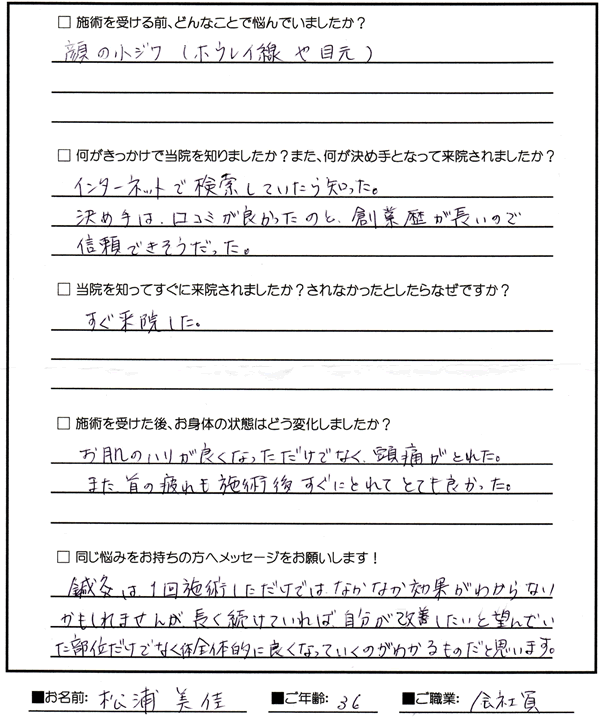 □ 施術を受ける前、どんなことで悩んでいましたか?
顔の小ジワ (ホウレイ線 や 目元)
□ 何がきっかけで当院を知りましたか?また、何が決め手となって来院されましたか?
インターネットで検索していたら知った。
決め手は、口コミが良かったのと、創業歴が長いので
信頼できそうだった。
□ 当院を知ってすぐに来院されましたか?されなかったとしたらなぜですか?
すぐ来院した。
□ 施術を受けた後、お身体の状態はどう変化しましたか?
お肌のハリが良くなっただけでなく、頭痛がとれた。
また、首の疲れも施術後すぐにとれてとても良かった。
□ 同じ悩みをお持ちの方へメッセージをお願いします!
鍼灸は、1回施術しただけでは、なかなか効果がわからない
かもしれませんが、長く続けていれば自分が改善したいと望んでい
た部位だけでなく体全体的に良くなっていくのがわかるものだと思います。
■お名前: 松浦 美佳 ■ご年齢: 36 ■ご職業: 会社員